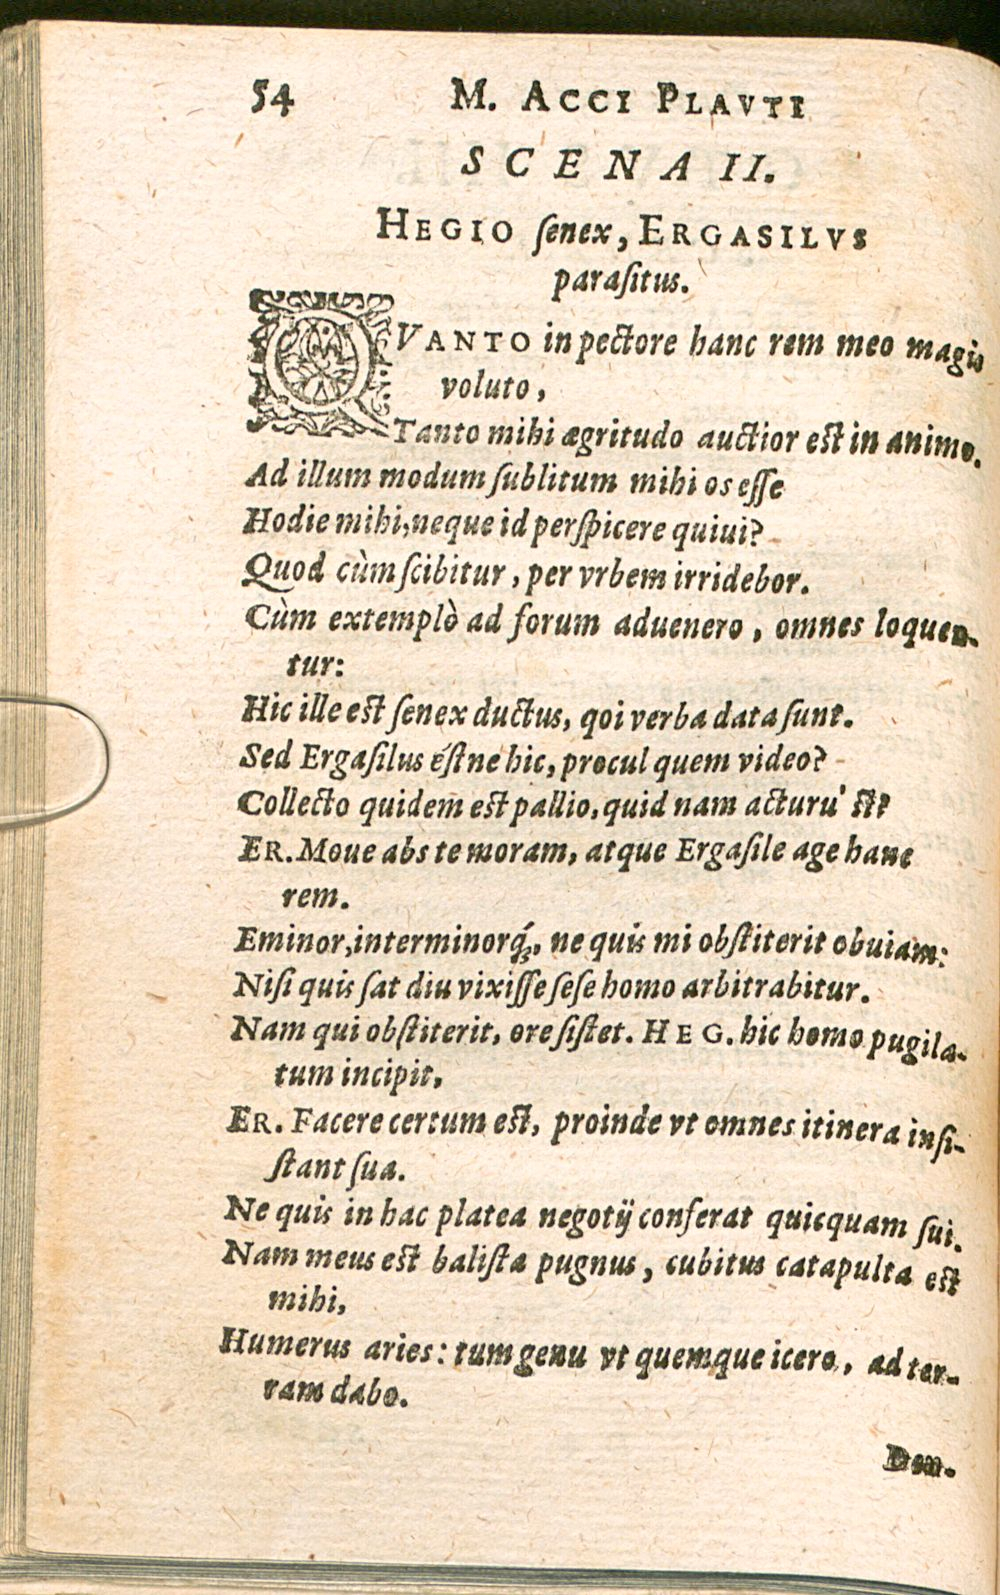 54 M. ACCI PLAVTI
SCENA II.
HEGIO ſenex, ERGASILVS
paraſitus.
QVANTO in pectore hanc rem meo magis
voluto,
Tanto mihi ægritudo auctior eſt in animo.
Ad illum modum ſublitum mihi os eſſe
Hodie mihi, neque id perſpicere quiui?
Quod cùm ſcibitur, per vrbem irridebor.
Cùm extemplò ad forum aduenero, omnes loquen-
tur:
Hic ille eſt ſenex ductus, qoi verba data ſunt.
Sed Ergaſilus éſtne hic, procul quem video?
Collecto quidem eſt pallio, quid nam acturu' ſt?
ER. Moue abs te moram, atque Ergaſile age hanc
rem.
Eminor, interminorq́;, ne quis mi obſtiterit obuiam:
Niſi quis ſat diu vixiſſe ſeſe homo arbitrabitur.
Nam qui obſtiterit, ore ſiſtet. HEG. hic homo pugila-
tum incipit,
ER. Facere certum eſt, proinde vt omnes itinera inſi-
ſtant ſua.
Ne quis in hac platea negotij conferat quicquam ſui.
Nam meus eſt baliſta pugnus, cubitus catapulta eſt
mihi,
Humerus aries: tum genu vt quemque icero, ad ter-
ram dabo.
Den-